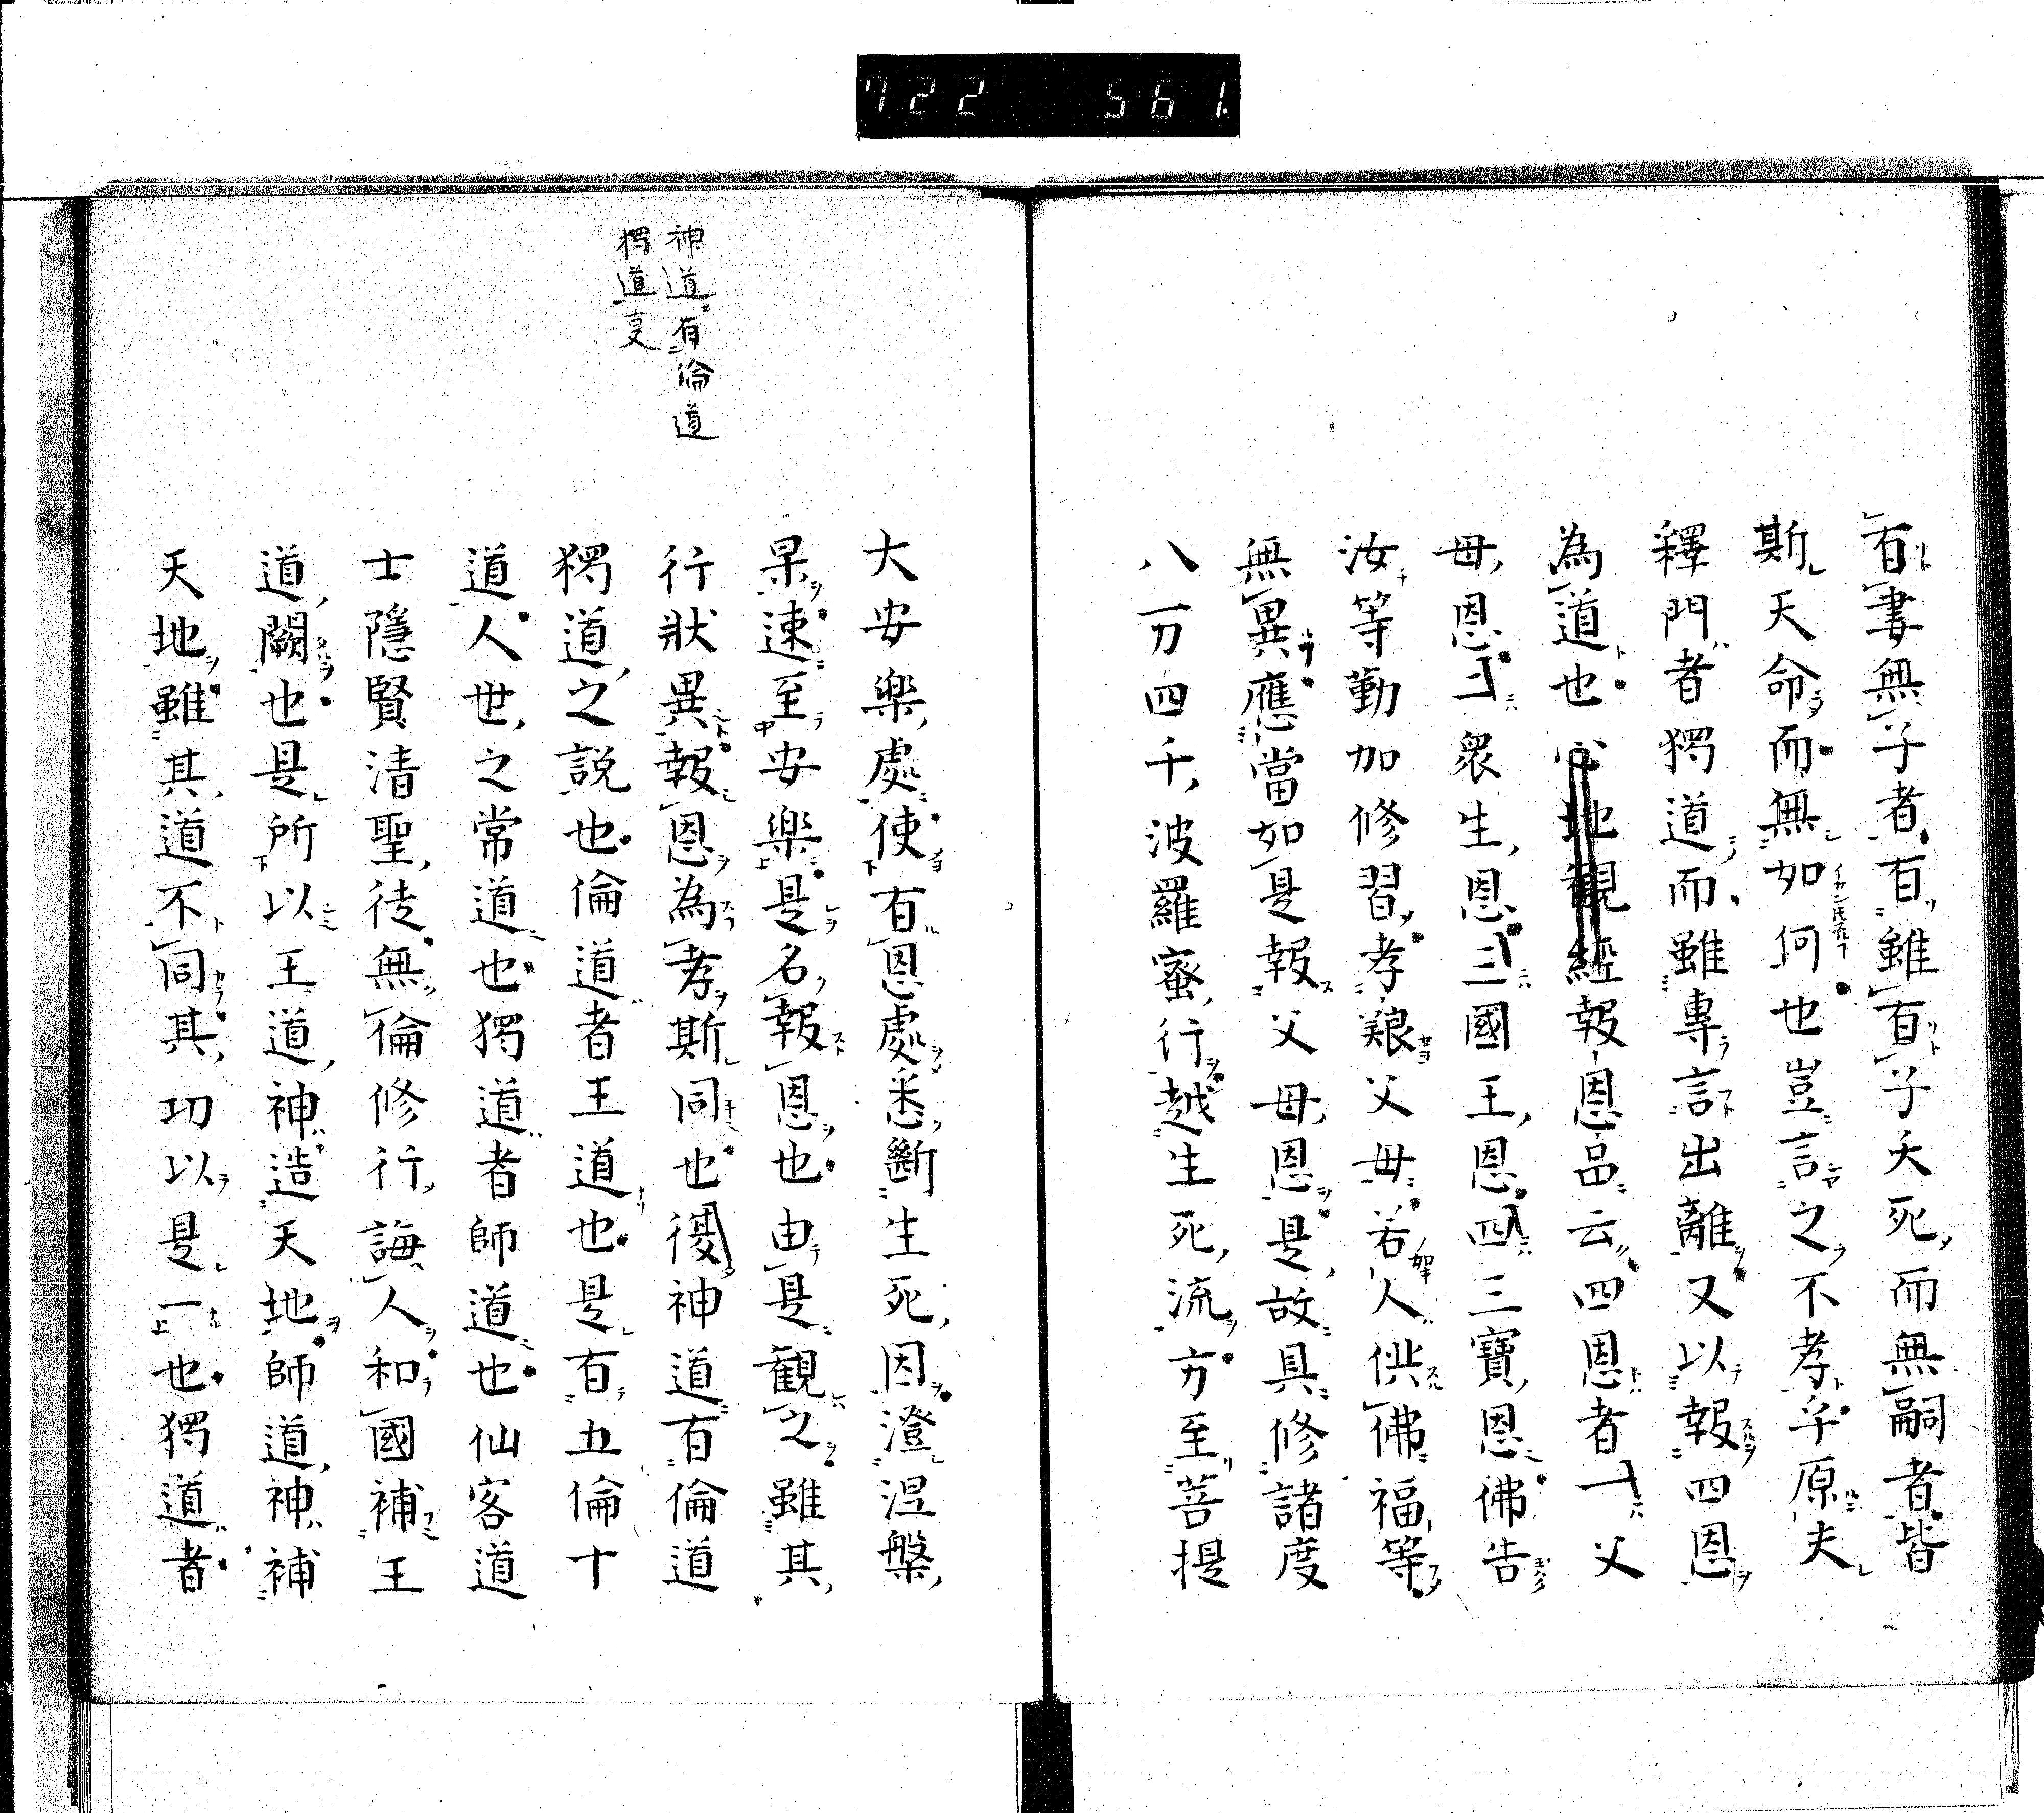 722 561.
有妻無子者有雖有子夭死而無嗣者皆
斯天命而無如何也豈言之不孝乎原夫
釋門者獨道而雖專言出離又以報四恩
為道也心地觀經報恩品云四恩者一父
母恩二衆生恩三國王恩四三寶恩佛告
汝等勤加修習孝養父母若人供佛福等
無異應當如是報父母恩是故具修諸度
八万四千波羅蜜行越生死流方至菩提
神道有倫道
獨道叓
大安樂處使有恩處悉斷生死因澄涅槃
果速至安樂是名報恩也由是觀之雖其
行狀異報恩為孝斯同也復神道有倫道
獨道之説也倫道者王道也是有五倫十
道人世之常道也獨道者師道也仙客道
士隱賢清聖徒無倫修行誨人和國補王
道闕也是所以王道神造天地師道神補
天地雖其道不同其功以是一也獨道者